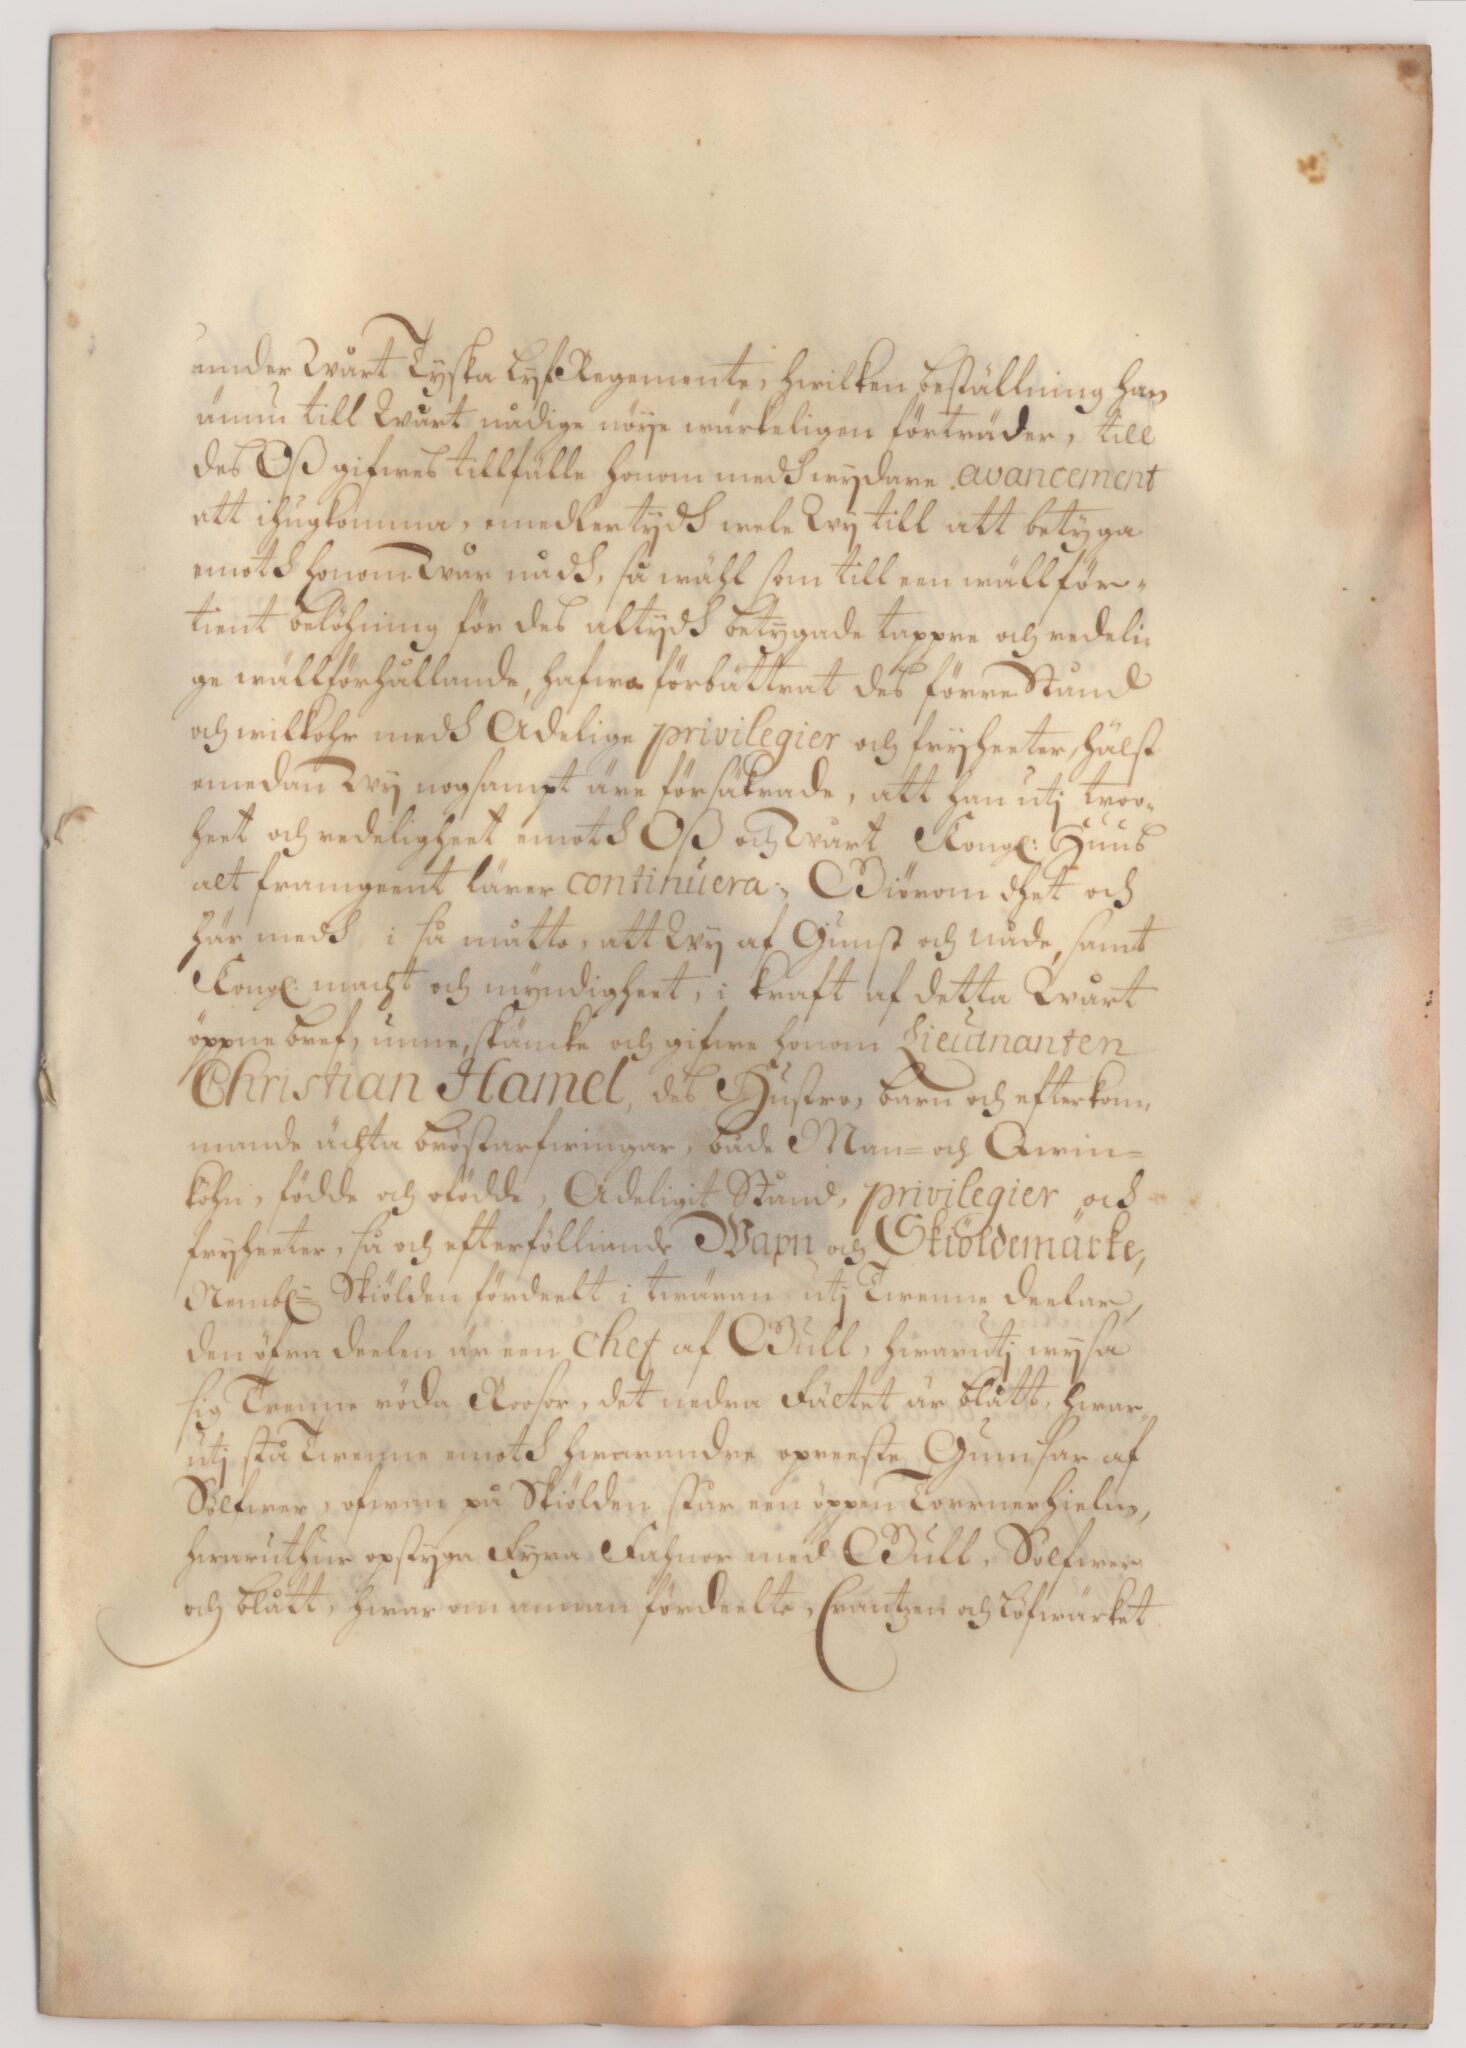 under Wårt Tyska LyfRegemente, hwilken beställning han
ännu till Wårt nådige nöye würkeligen förträder, till
des Oß gifwes tillfälle honom medh wydare avancement
att ihugkomma, emedlertydh wele Wy till att betyga
emoth honom Wår nådh, så wähl som till een wällför-
tient belöhning för des altydh betygade tappre och redeli-
ge wällförhållande, hafwa förbättrat des förre Stånd
och wilkohr medh Adelige privilegier och fryheeter, hälst
emedan Wy nogsampt äre försäkrade, att han utj troo-
heet och redeligheet emoth Oß och Wårt Kongl: Huus
alt framgeent lärer continuera; Giörom dhet och
här medh i så matto, att Wy af Gunst och nåde, samt
Kongl: macht och myndigheet, i kraft af detta Wårt
öppne bref, unne, skäncke och gifwe honom Lieutnanten
Christian Hamel, des Hustro, barn och efterkom-
mande ächta bröstarfwingar, både Man= och Qwin=
köhn, födde och ofödde, Adeligit Stånd, privilegier och
fryheeter, så och efterfölliande Wapn och Skiöldemärke,
Nembl:n Skiölden fördeelt i twären utj Twenne deelar,
den öfra deelen är een chef af Gull, hwarutj wysa
sig Trenne röda Roosor, det nedra Fältet är blått, hwar-
utj stå Twenne emoth hwarandre opreeste Gumsar af
Sölfwer, ofwan på Skiölden står een öppen Tornerhielm,
hwaruthur opstyga Fyra Fahnor med Gull, Sölfwer
och blått, hwar om annan fördeelte, Crantzen och Löfwärket